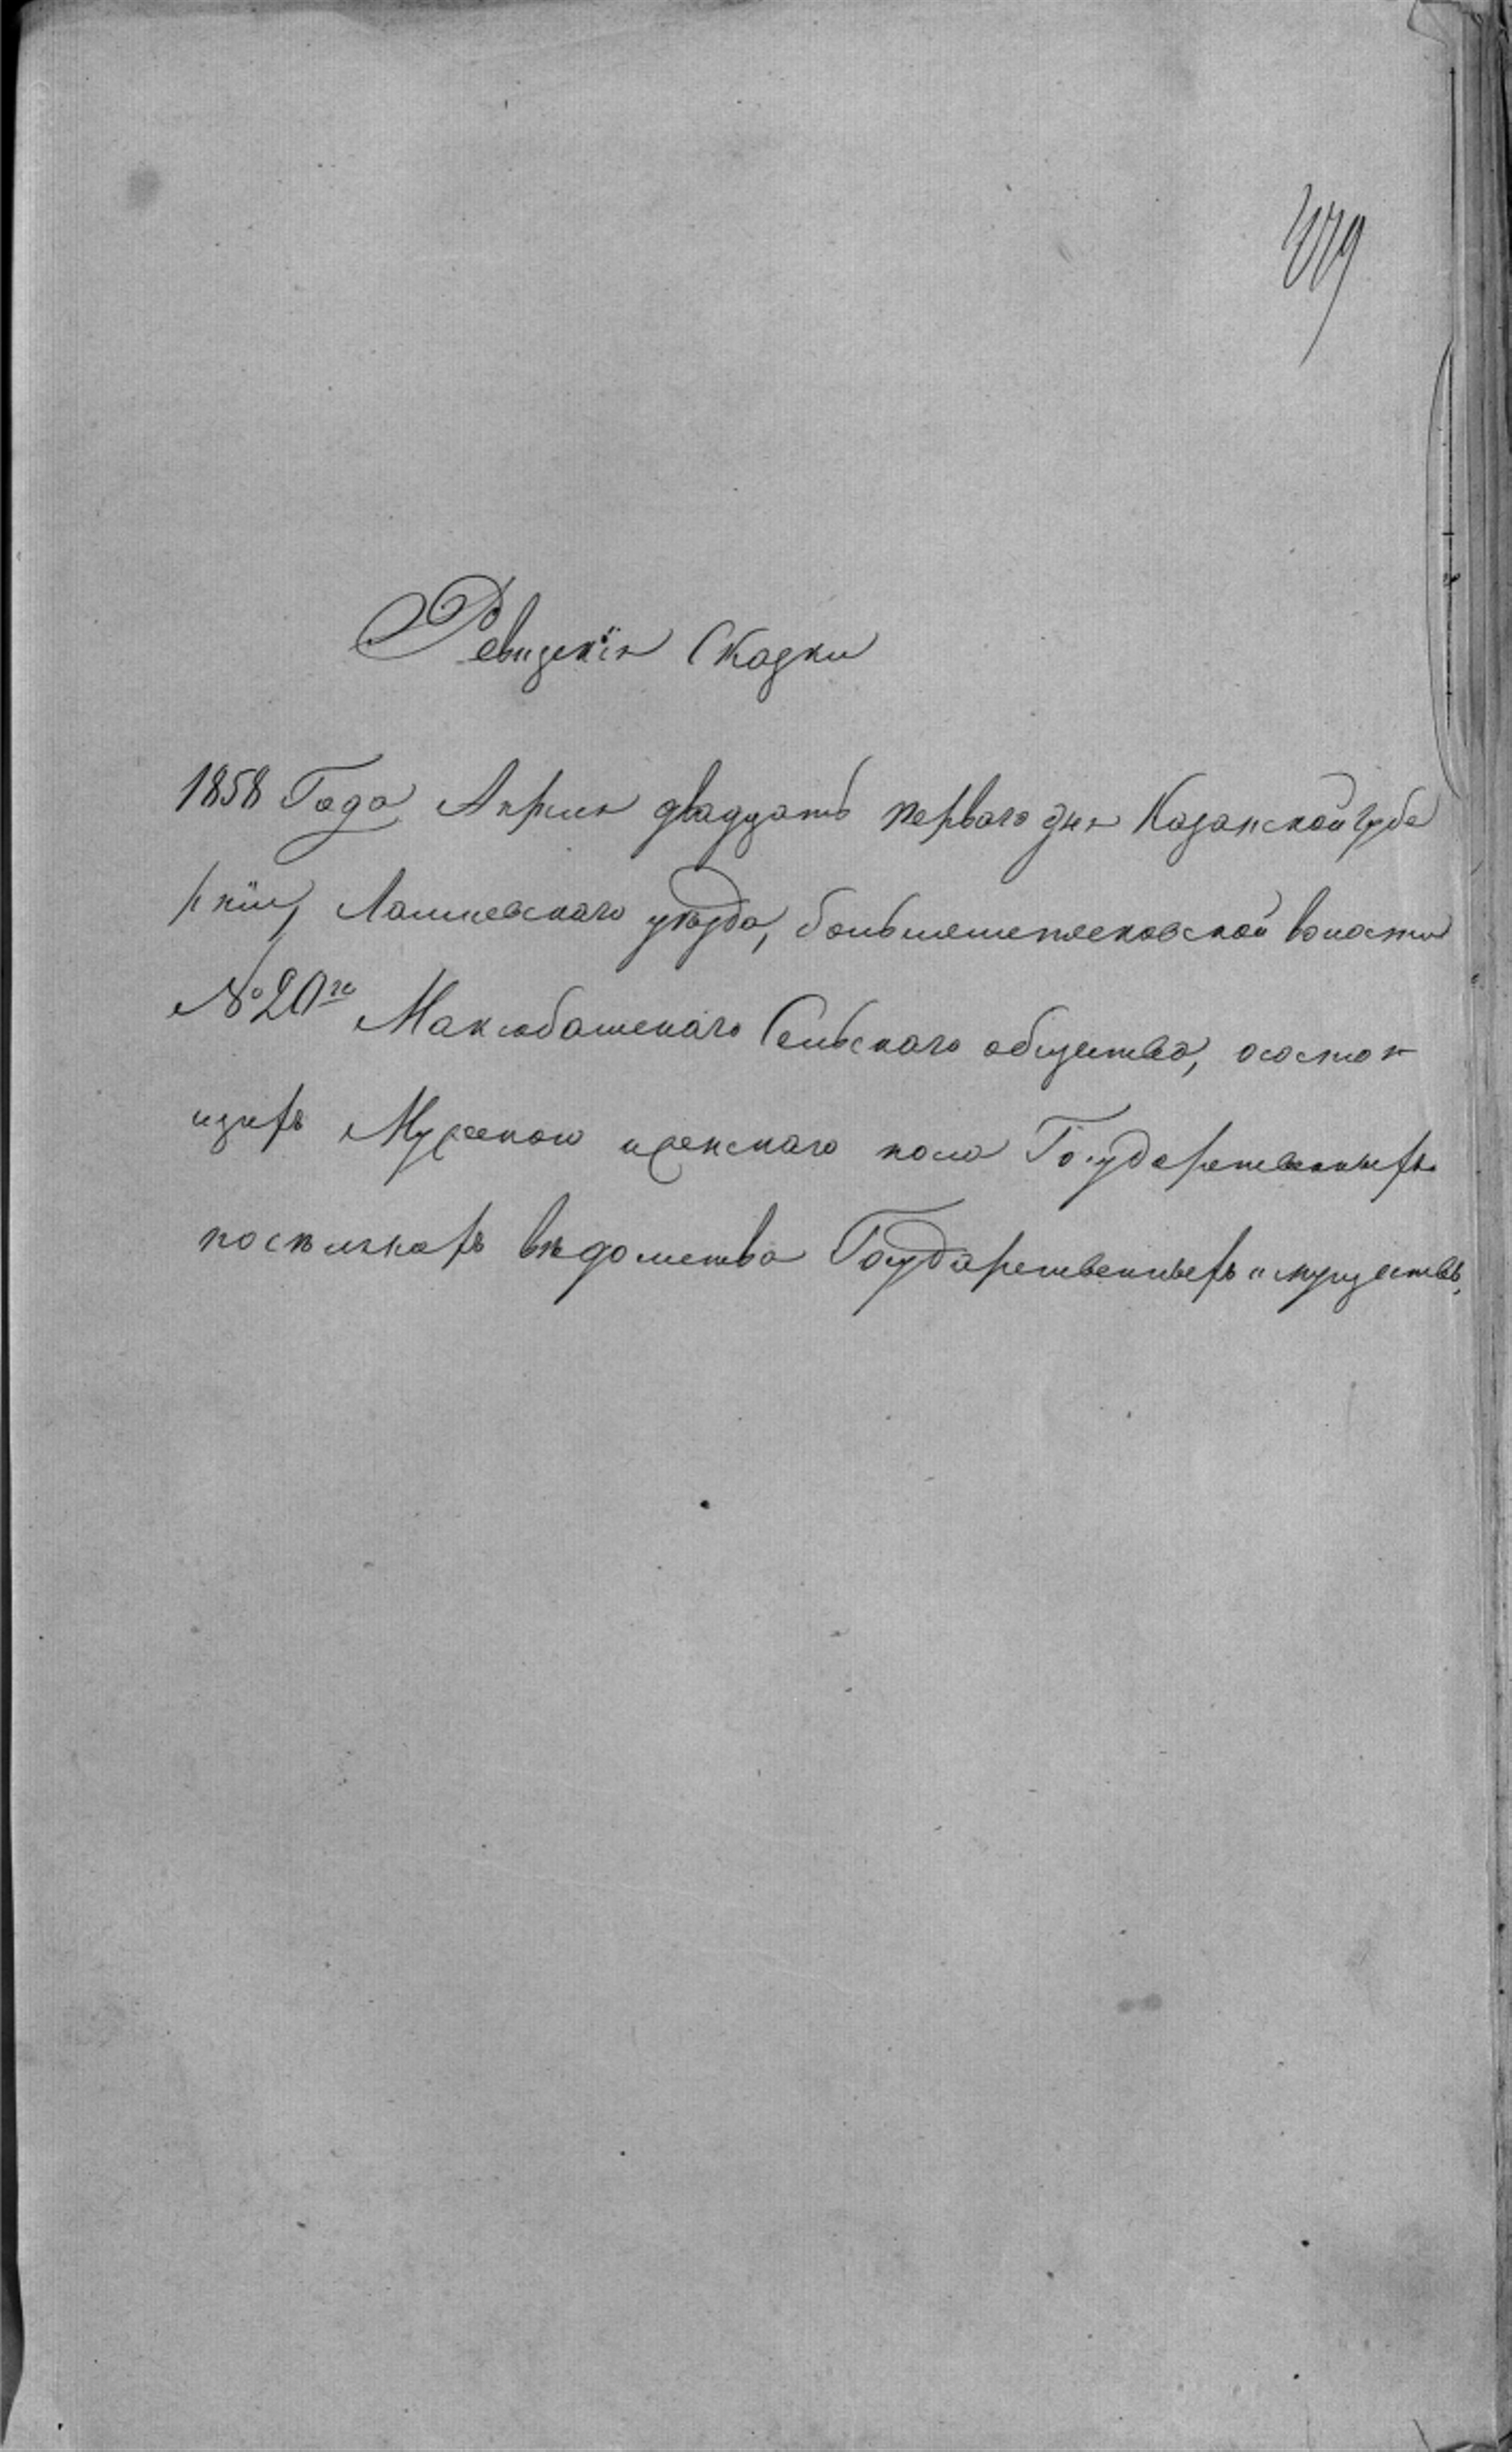 Ревизскiя Сказки
1858 Года Апреля двадцать перваго дня Казанской губе
рнiи, Лаишевскаго уѣзда, большемешенсковской волости
№ 20го Максабашскаго Сельскаго общества, о состоя
щихъ Мужеска и женскаго пола Государственныхъ
поселянахъ вѣдомства Государственныхъ имуществъ,